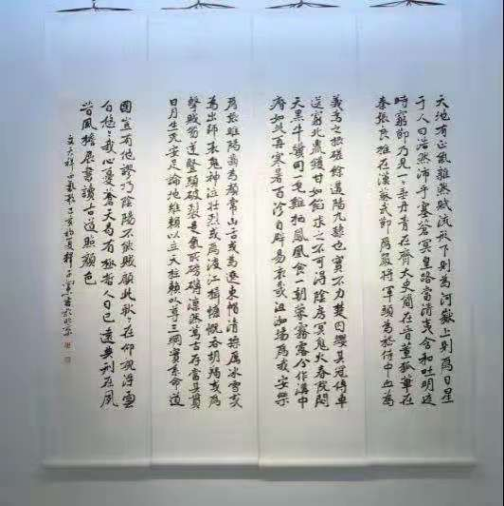 天地有正氣雜然賦流形下則為河嶽上則為日星
于人曰浩然沛乎塞蒼冥皇路當清夷含和吐明廷
時窮節乃見一一垂丹青在齊太史簡在晉董狐筆在
秦張良椎在漢蘇武節為嚴將軍頭為嵇侍中血為
義為之根嗟余遘陽九隸也實不力楚囚纓其冠傳車
送窮北鼎鑊甘如飴求之不可得陰房冥鬼火春院閟
天黑牛驥同一皂雞栖鳳凰食一朝蒙霧露分作溝中
瘠如此再寒暑百沴自辟易哀哉沮洳場為我安樂
張睢陽齒為顏常山舌或為遼東帽清操厲冰雪或
為出師表鬼神泣壯烈或為渡江楫慷慨吞胡羯或為
擊賊笏逆豎頭破裂是氣所磅礴凜然萬古存當其貫
日月生死安足論地維賴以立天柱賴以尊三綱實系命道
國豈有他謬巧陰陽不能賊顧此耿耿在仰視浮雲
白悠悠我心憂蒼天曷有極哲人日已遠典刑在夙
昔風檐展書讀古道照顏色
文天祥正氣歌